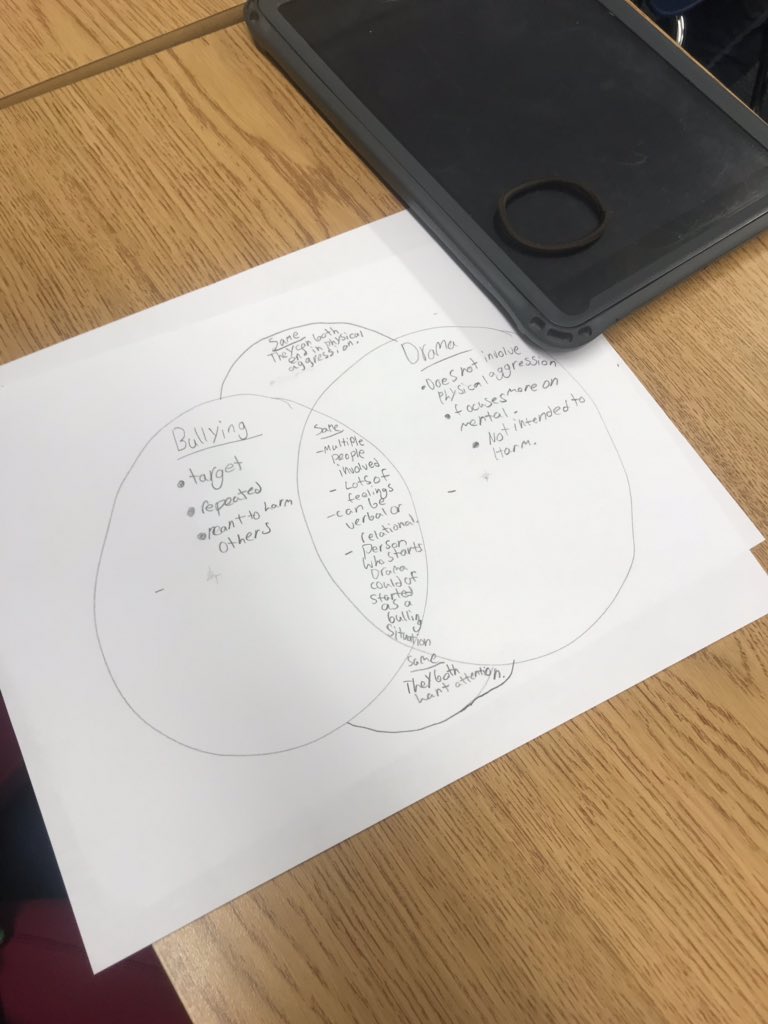 Same
They can both
end in physical
aggression.
Bullying
• target
• repeated
• meant to harm
others
Same
- Multiple
people
involved
- Lots of
feelings
- can be
verbal or
relational.
- person
who starts
Drama
could of
started
as a
bulling
situation
Drama
• Does not involve
physical aggression
• focuses more on
mental.
• Not intended to
Harm.
Same
They both
want attention.